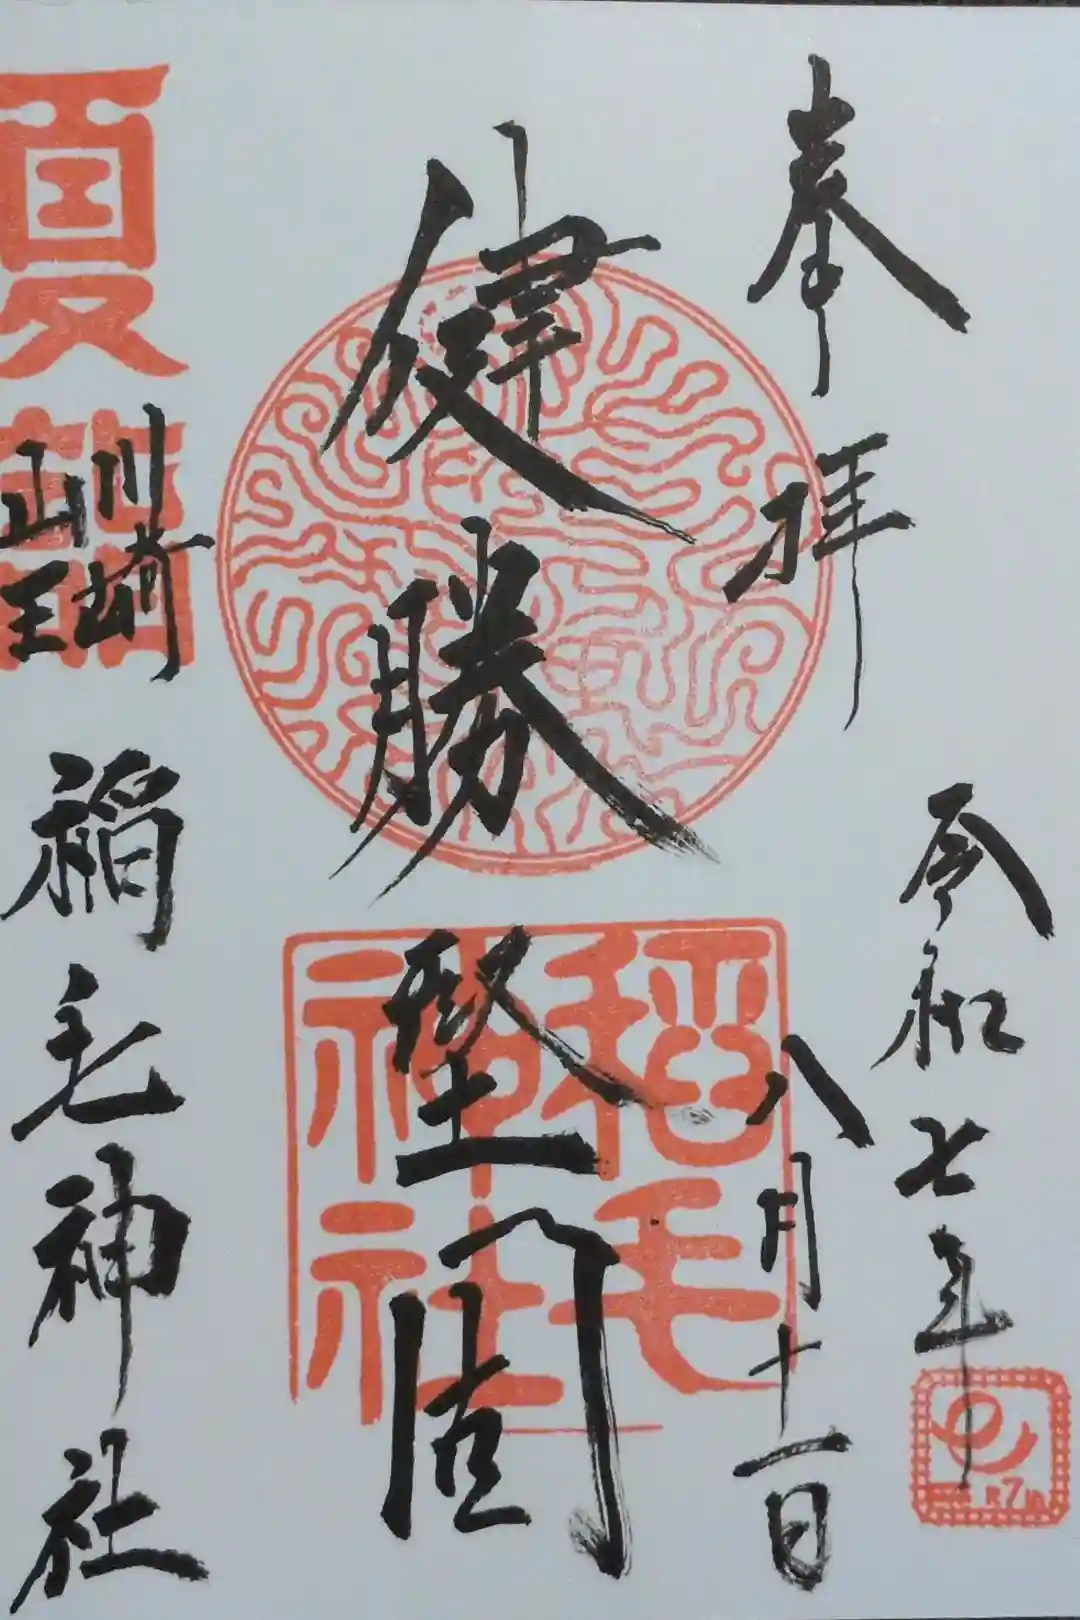 奉拝
令和七年
八月十一日
健勝堅固
川崎
山王
稲毛神社
稲毛
神社
夏詣
R7